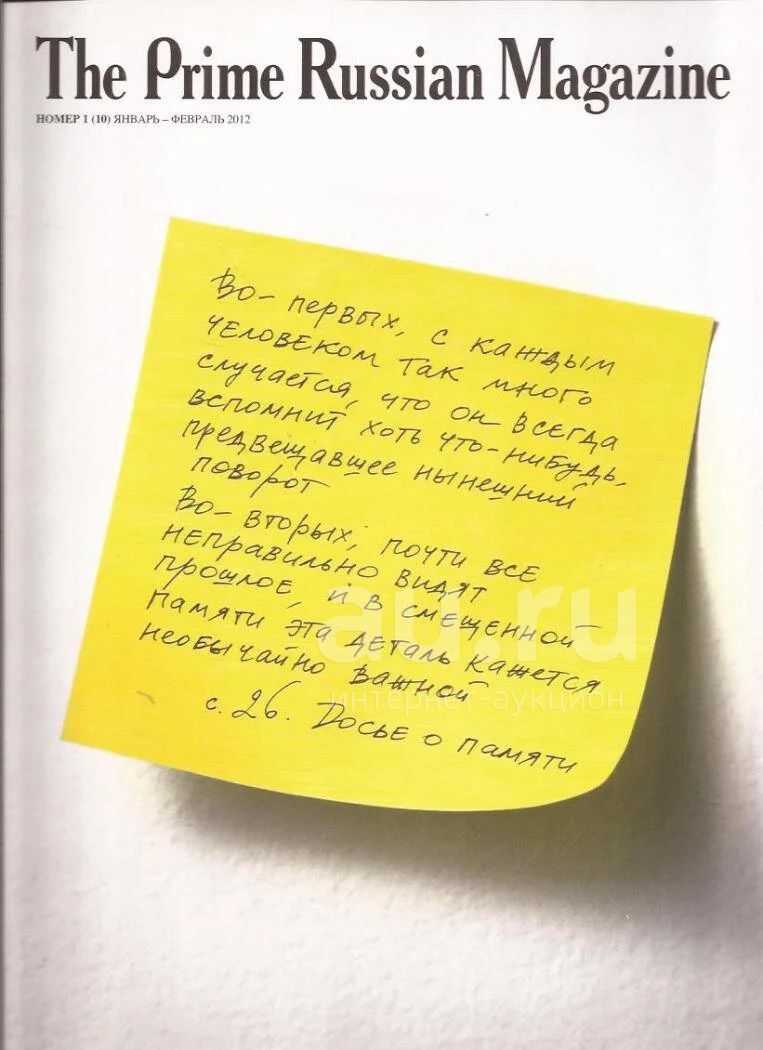 The Prime Russian Magazine
НОМЕР 1 (10) ЯНВАРЬ – ФЕВРАЛЬ 2012
Во-первых, с каждым
человеком так много
случается, что он всегда
вспомнит хоть что-нибудь,
предвещавшее нынешний
поворот
Во-вторых, почти все
неправильно видят
прошлое, и в смещенной
памяти эта деталь кажется
необычайно важной
с. 26. Досье о памяти
au.ru
интернет-аукцион